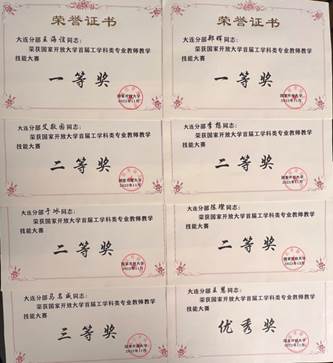 荣誉证书
大连分部王海滢同志:
荣获国家开放大学首届工学科类专业教师教学
技能大赛
一等奖
国家开放大学
2022年11月
荣誉证书
大连分部郝辉同志:
荣获国家开放大学首届工学科类专业教师教学
技能大赛
一等奖
国家开放大学
2022年11月
大连分部艾敬同志:
荣获国家开放大学首届工学科类专业教师教学
技能大赛
二等奖
国家开放大学
2022年11月
大连分部李想同志:
荣获国家开放大学首届工学科类专业教师教学
技能大赛
二等奖
国家开放大学
2022年11月
大连分部于冰同志:
荣获国家开放大学首届工学科类专业教师教学
技能大赛
二等奖
国家开放大学
2022年11月
大连分部陈煜同志:
荣获国家开放大学首届工学科类专业教师教学
技能大赛
二等奖
国家开放大学
2022年11月
大连分部马名威同志:
荣获国家开放大学首届工学科类专业教师教学
技能大赛
三等奖
国家开放大学
2022年11月
大连分部王慧同志:
荣获国家开放大学首届工学科类专业教师教学
技能大赛
优秀奖
国家开放大学
2022年11月